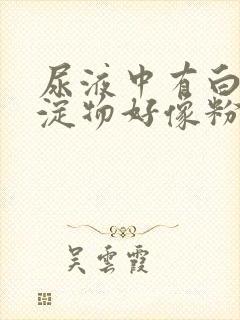 尿液中有白
淀物好像粉
吴雲霞